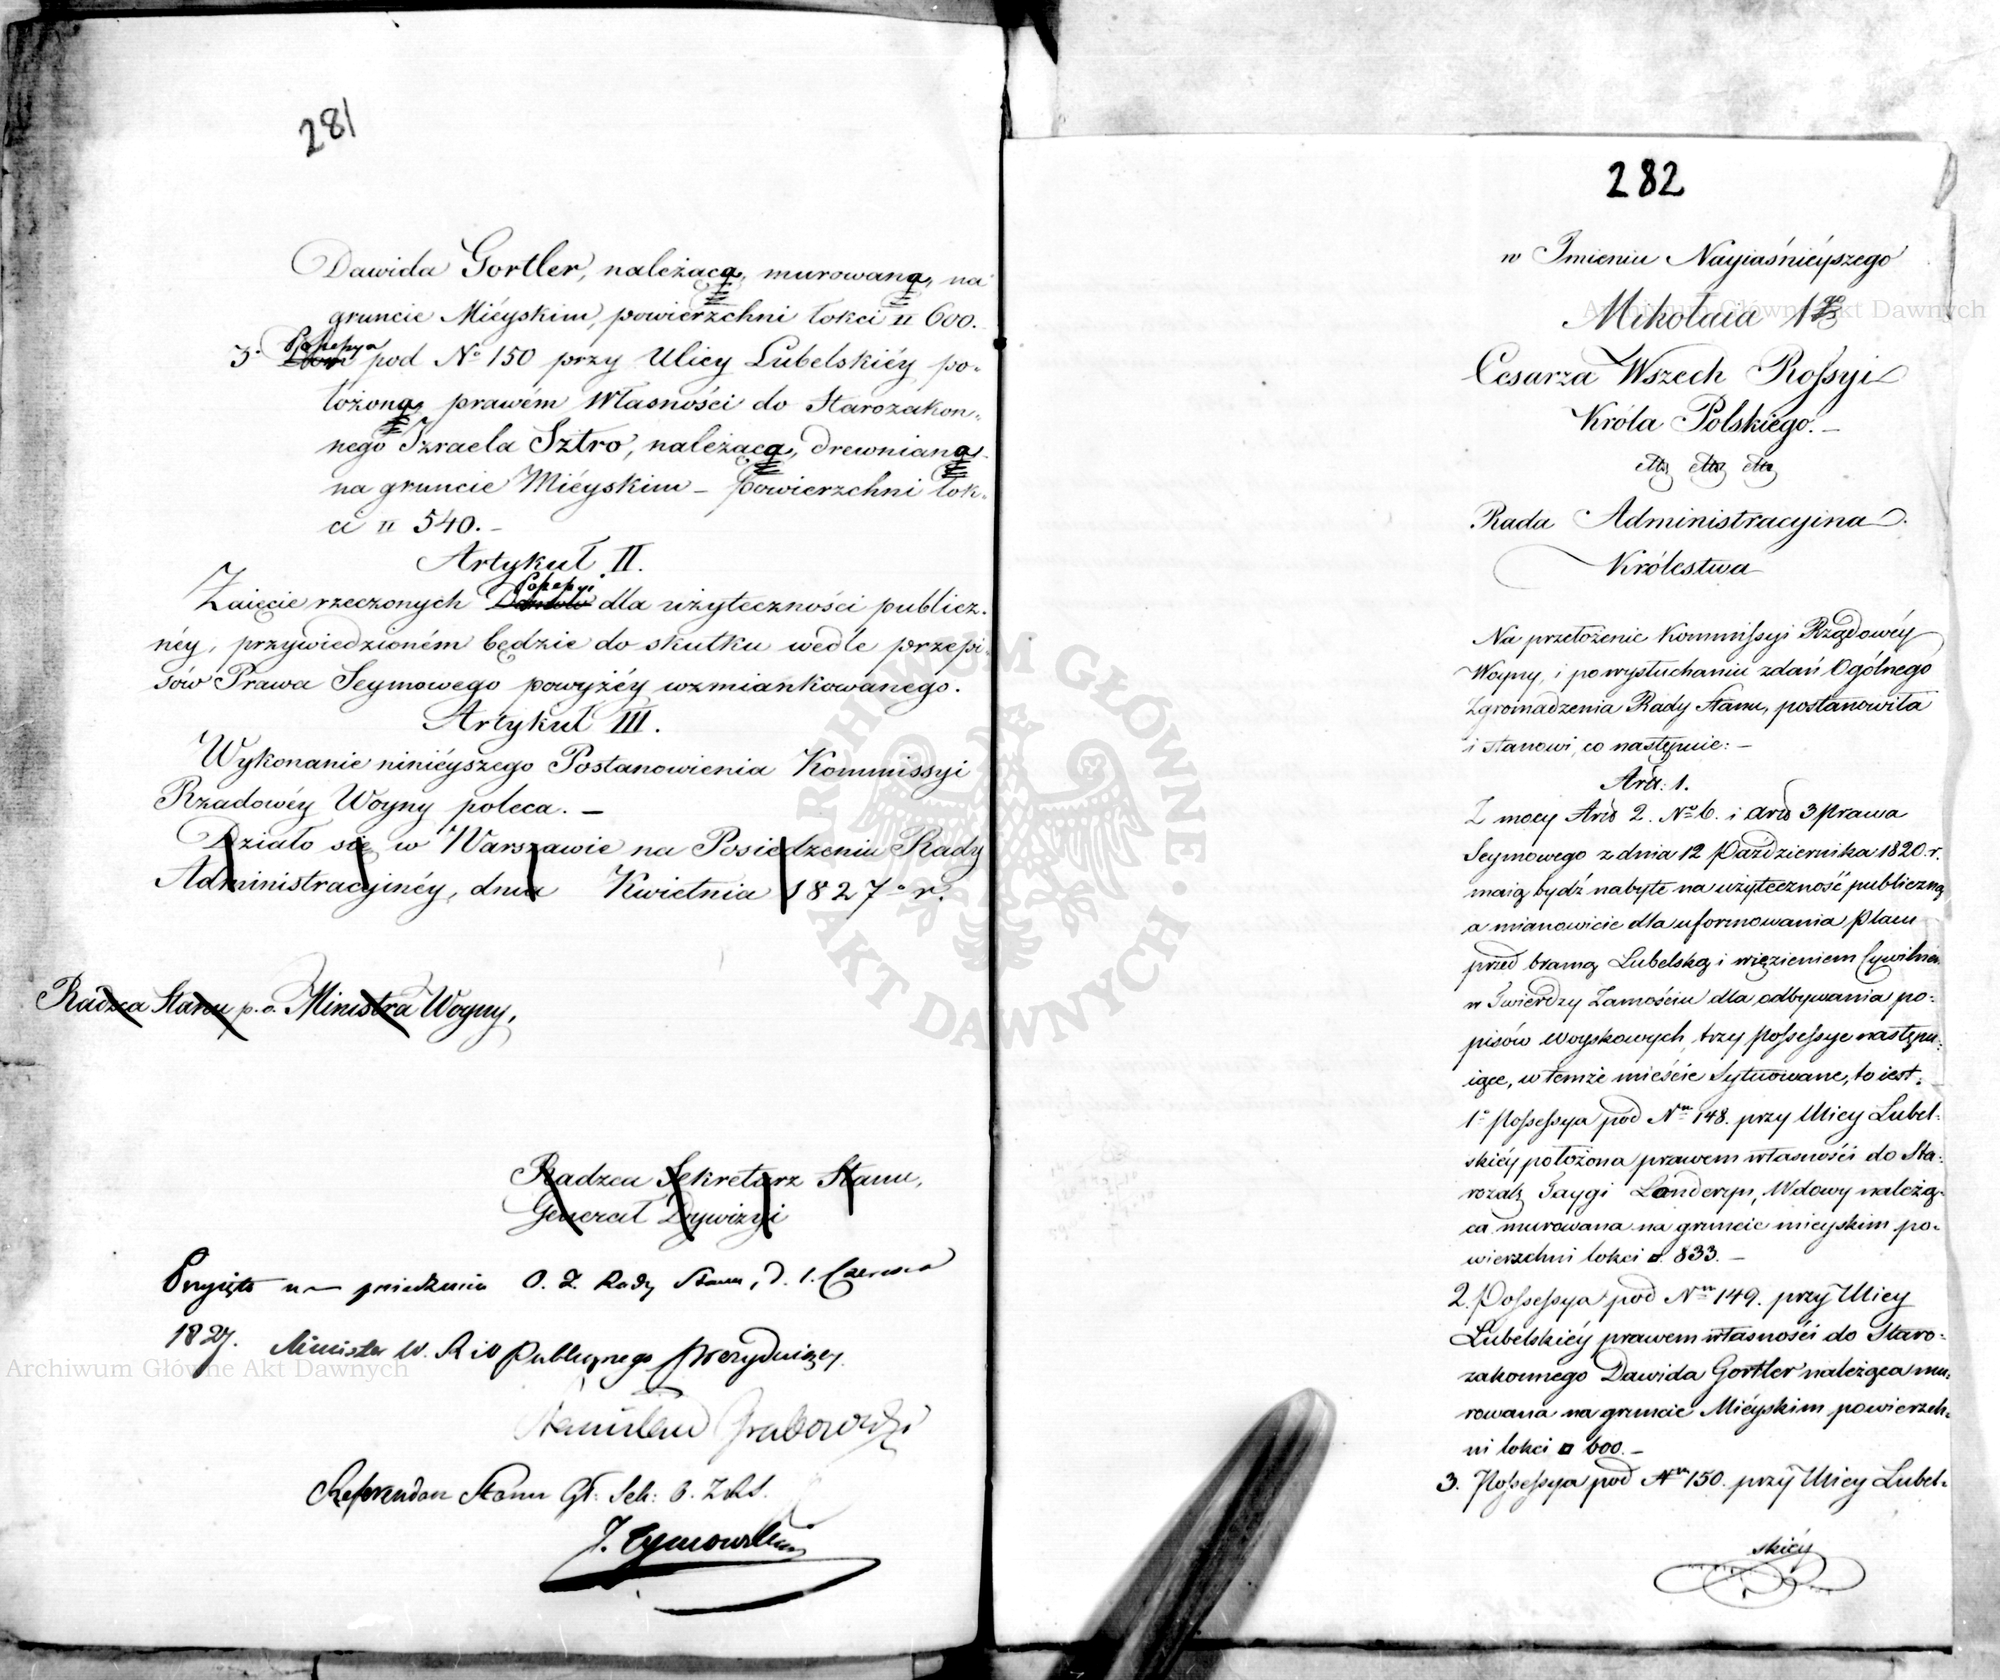 281
Dawida Gortler, należącą, murowaną, na
gruncie Miéyskim, powierzchni łokci □ 600.
3° Possessya pod N° 150 przy Ulicy Lubelskiéy po-
łożoną, prawém Własności do Starozakon-
nego Izraela Sztro, należącą, drewnianą
na gruncie Miéyskim – powierzchni łok-
ci □ 540. –
Artykuł II.
Zaięcie rzeczonych Possessyi dla użyteczności publicz-
néy, przywiedzioném będzie do skutku wedle przepi-
sów Prawa Seymowego powyżéy wzmiankowanego.
Artykuł III.
Wykonanie ninieyszego Postanowienia Kommissyi
Rządowéy Woyny poleca. –
Działo się w Warszawie na Posiedzeniu Rady
Administracyinéy, dnia Kwietnia 1827° r.
Radzca Stanu p. o. Ministra Woyny,
Radzca Sekretarz Stanu,
Generał Dywizyi
Przyięte na posiedzeniu O. Z. Rady Stanu, d. 1. Czerwca
1827. Minister W. R. i O. Publicznego Prezyduiący.
Stanisław Grabowski
Referendarz Stanu Gł: Sek: O. Z. R. S.
J. Tymowski
282
w Imieniu Nayiaśniéyszego
Mikołaia 1go
Cesarza Wszech Rossyi
Króla Polskiego. –
etc etc etc
Rada Administracyina
Królestwa
Na przełożenie Kommissyi Rządowéy
Woyny, i po wysłuchaniu zdań Ogólnego
Zgromadzenia Rady Stanu, postanowiła
i stanowi, co następuie: –
Art: 1.
Z mocy Art 2. No 6. i art 3 Prawa
Seymowego z dnia 12 Października 1820. r.
maią bydź nabyte na użyteczność publiczną
a mianowicie dla uformowania Placu
przed bramą Lubelską i więzieniem Cywilnem
w Twierdzy Zamościu dla odbywania po-
pisów Woyskowych, trzy Possessye następu-
iące, w temże mieście sytuowane, to iest. –
1° Possessya pod Nr 148. przy Ulicy Lubel-
skiéy położona prawem własności do Sta-
rozak Taygi Länderzyn, Wdowy należą-
ca murowana na gruncie mieyskim po-
wierzchni łokci □. 833. –
2. Possessya pod Nr 149. przy Ulicy
Lubelskiéy prawem własności do Staro-
zakonnego Dawida Gortler należąca mu-
rowana na gruncie Miéyskim powierzch-
ni łokci □ 600. –
3. Possessya pod Nr 150. przy Ulicy Lubel-
skiéy
Archiwum Główne Akt Dawnych
Archiwum Główne Akt Dawnych
ARCHIWUM GŁÓWNE · AKT DAWNYCH ·